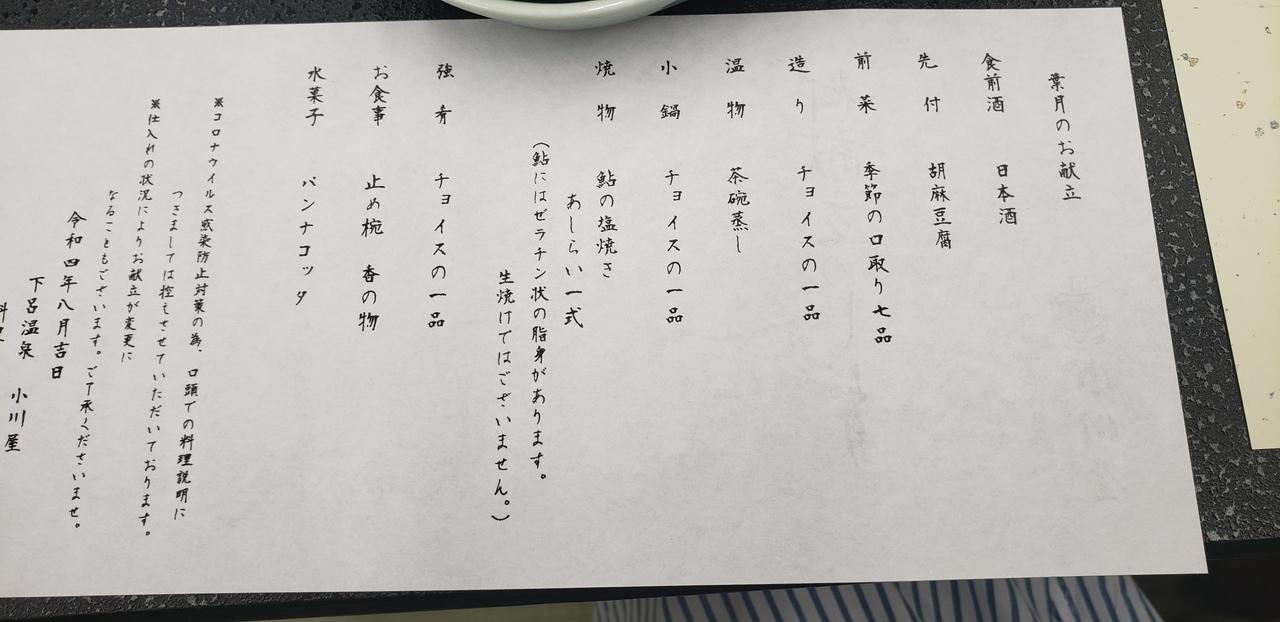 葉月のお献立
食前酒　日本酒
先付　胡麻豆腐
前菜　季節の口取り七品
造り　チョイスの一品
温物　茶碗蒸し
小鍋　チョイスの一品
焼物　鮎の塩焼き
あしらい一式
（鮎にはゼラチン状の脂身があります。
生焼けではございません。）
強肴　チョイスの一品
お食事　止め椀　香の物
水菓子　パンナコッタ
※コロナウイルス感染防止対策の為、口頭での料理説明に
つきましては控えさせていただいております。
※仕入れの状況によりお献立が変更に
なることもございます。ご了承くださいませ。
令和四年八月吉日
下呂温泉　小川屋